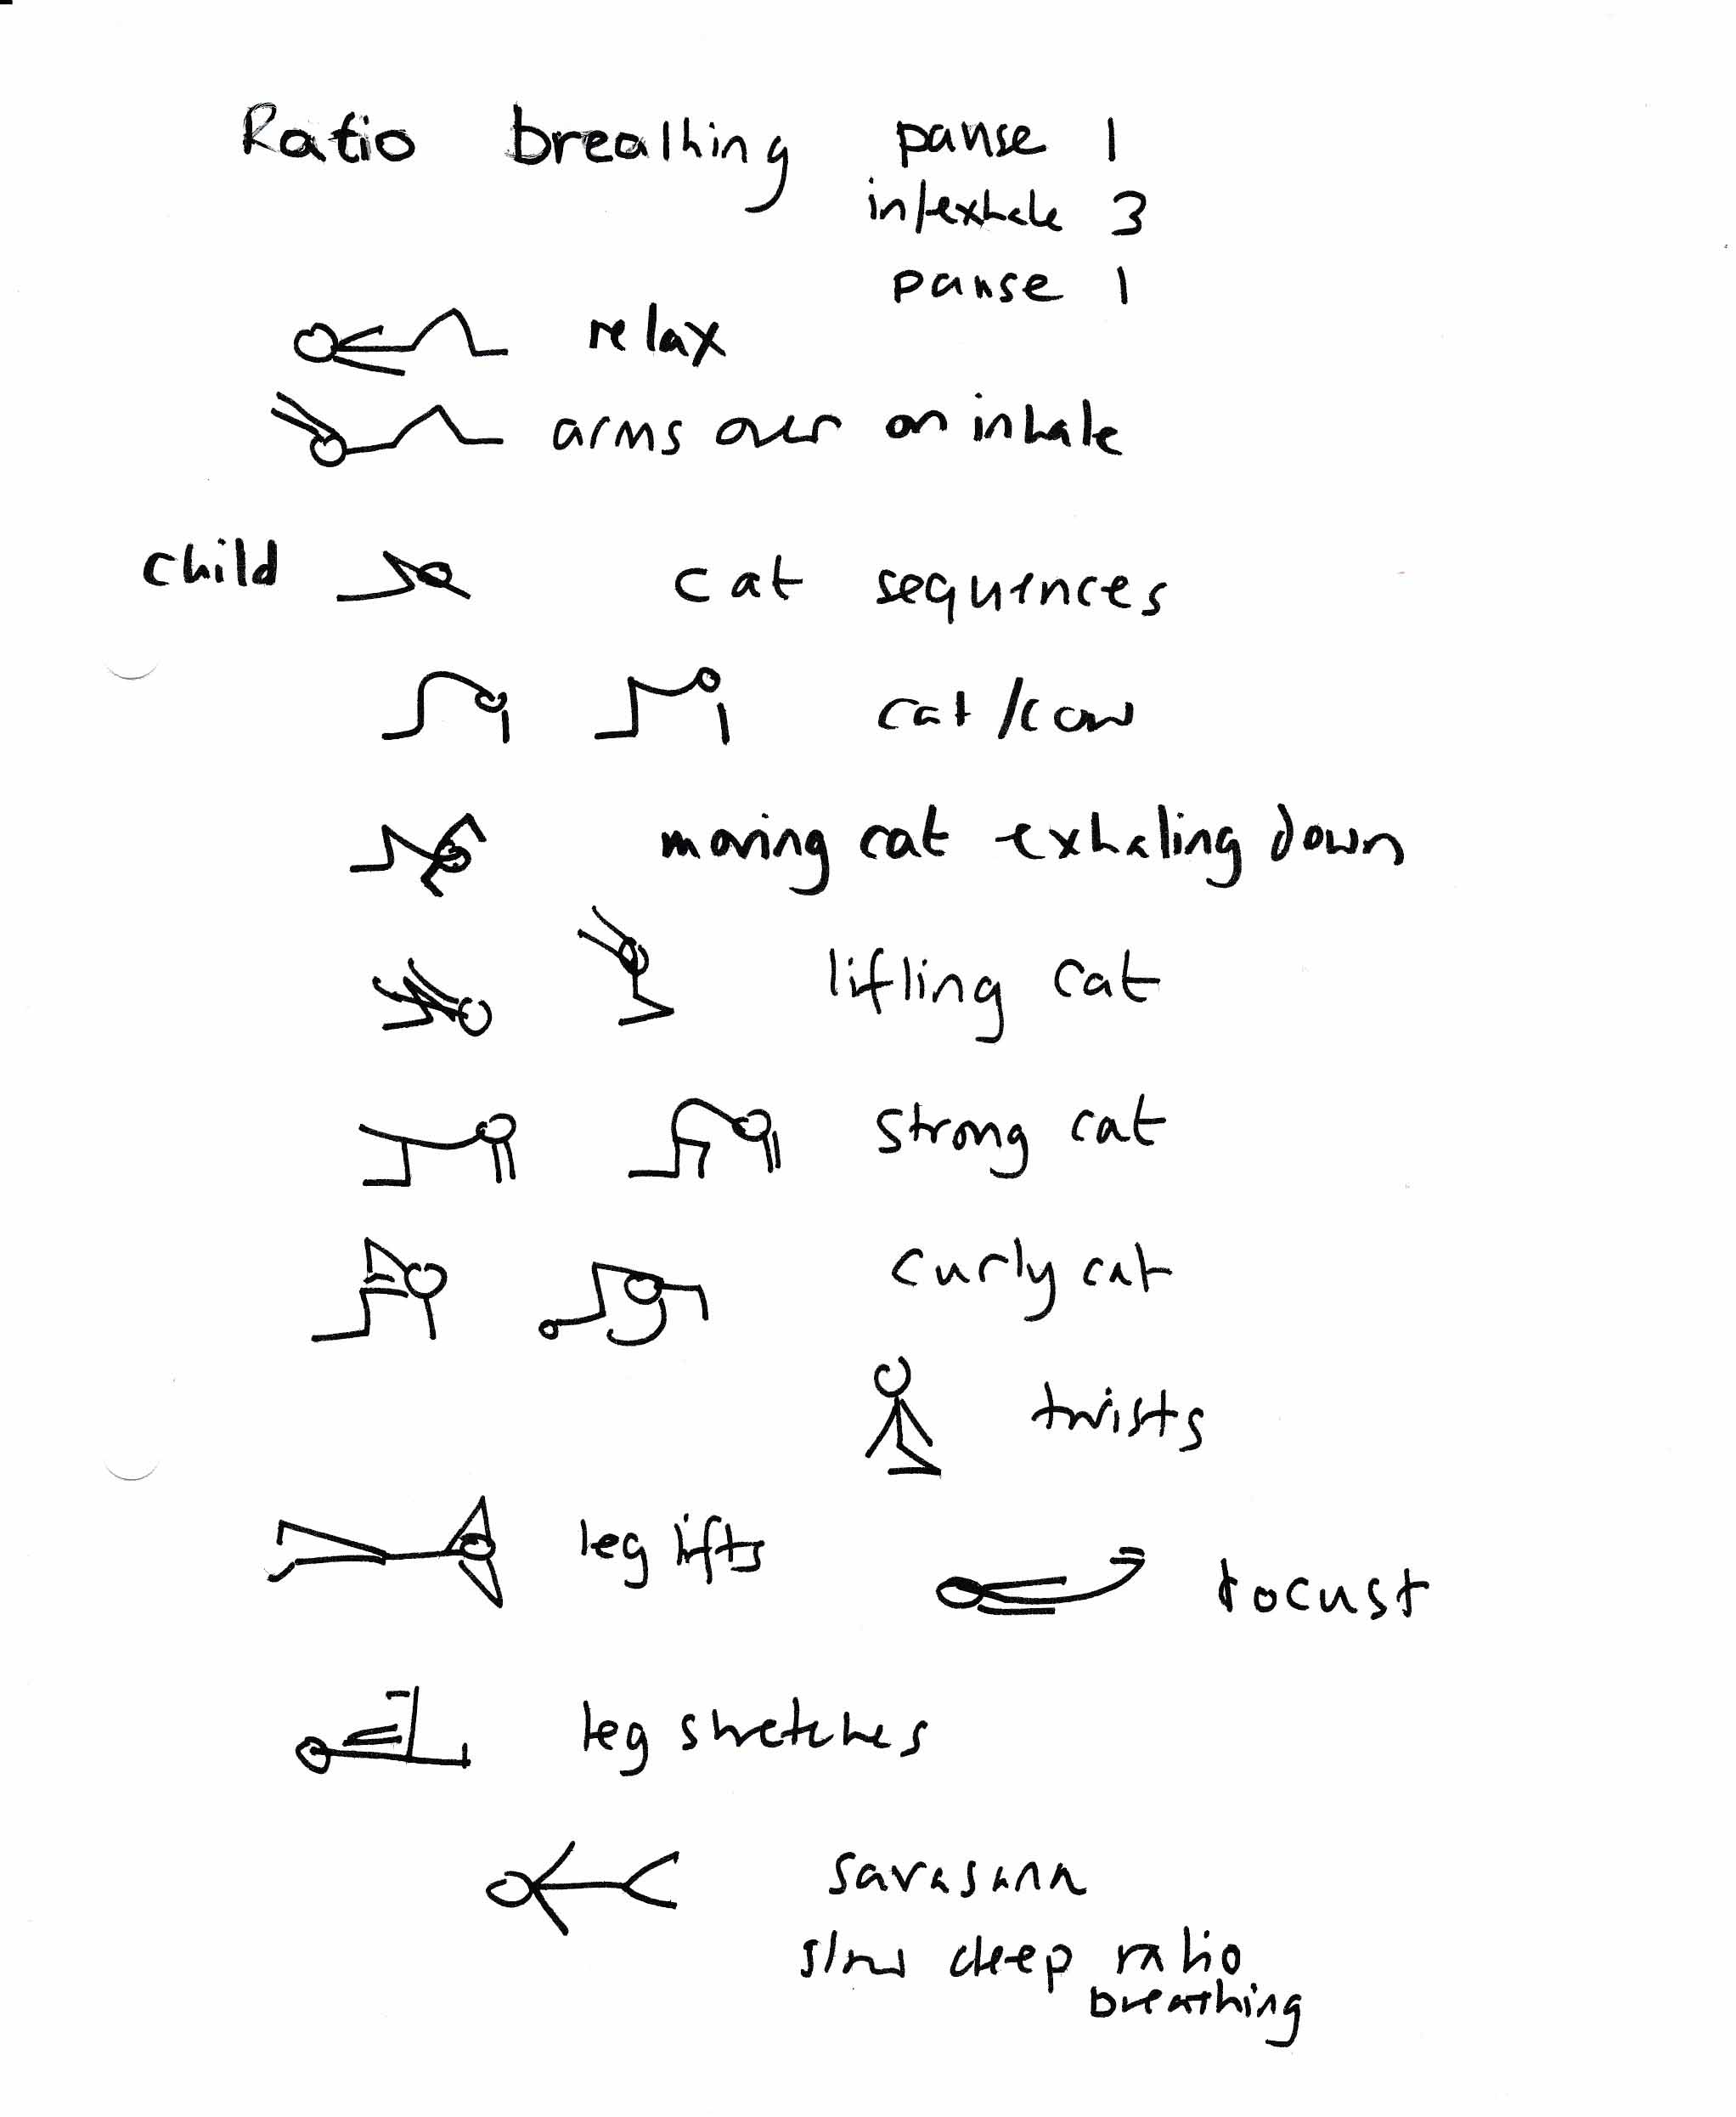 Ratio breathing pause 1
in/exhale 3
pause 1
relax
arms over on inhale
child cat sequences
cat/cow
moving cat exhaling down
lifting cat
strong cat
curly cat
twists
leg lifts
locust
leg stretches
savasana
slow deep ratio
breathing